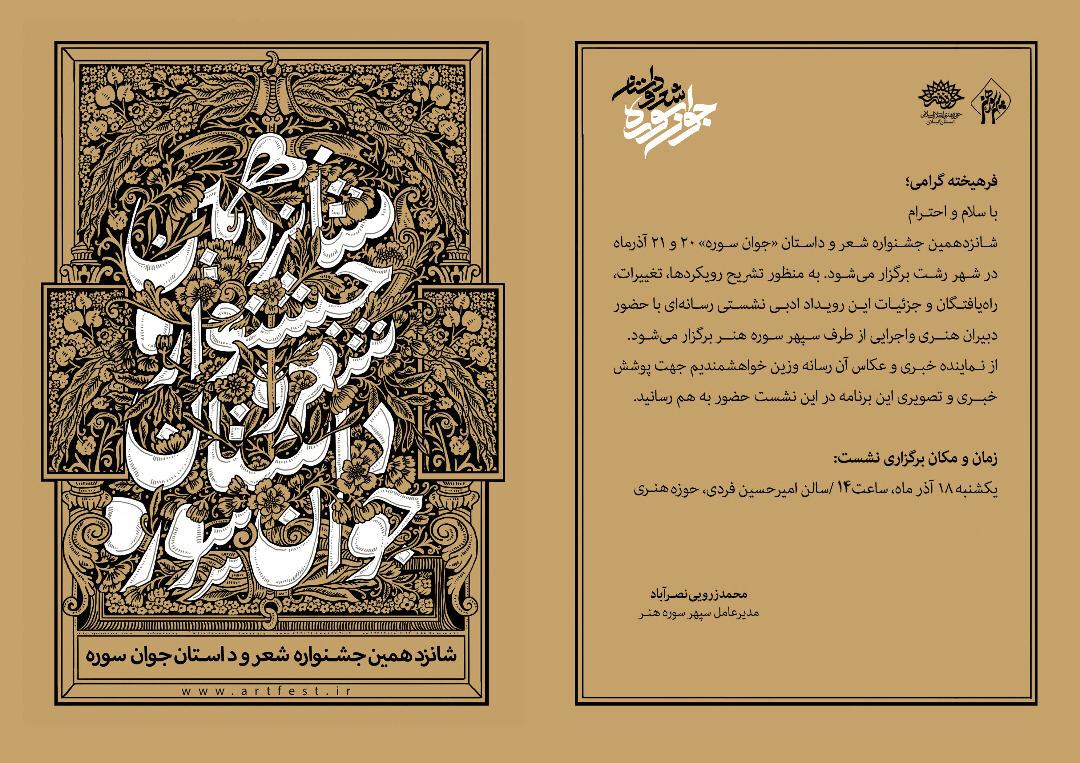 شانزدهمین
جشنواره
شعر و
داستان
جوان سوره
شانزدهمین جشنواره شعر و داستان جوان سوره
www.artfest.ir
شعر و داستان
جوان سوره
حوزه هنری انقلاب اسلامی
استان گیلان
فرهیخته گرامی؛
با سلام و احترام
شانزدهمین جشنواره شعر و داستان «جوان سوره» ۲۰ و ۲۱ آذرماه
در شهر رشت برگزار می‌شود. به منظور تشریح رویکردها، تغییرات،
راه‌یافتگان و جزئیات این رویداد ادبی نشستی رسانه‌ای با حضور
دبیران هنری واجرایی از طرف سپهر سوره هنر برگزار می‌شود.
از نماینده خبری و عکاس آن رسانه وزین خواهشمندیم جهت پوشش
خبری و تصویری این برنامه در این نشست حضور به هم رسانید.
زمان و مکان برگزاری نشست:
یکشنبه ۱۸ آذر ماه، ساعت ۱۴ /سالن امیرحسین فردی، حوزه هنری
محمدزرویی‌نصرآباد
مدیرعامل سپهر سوره هنر